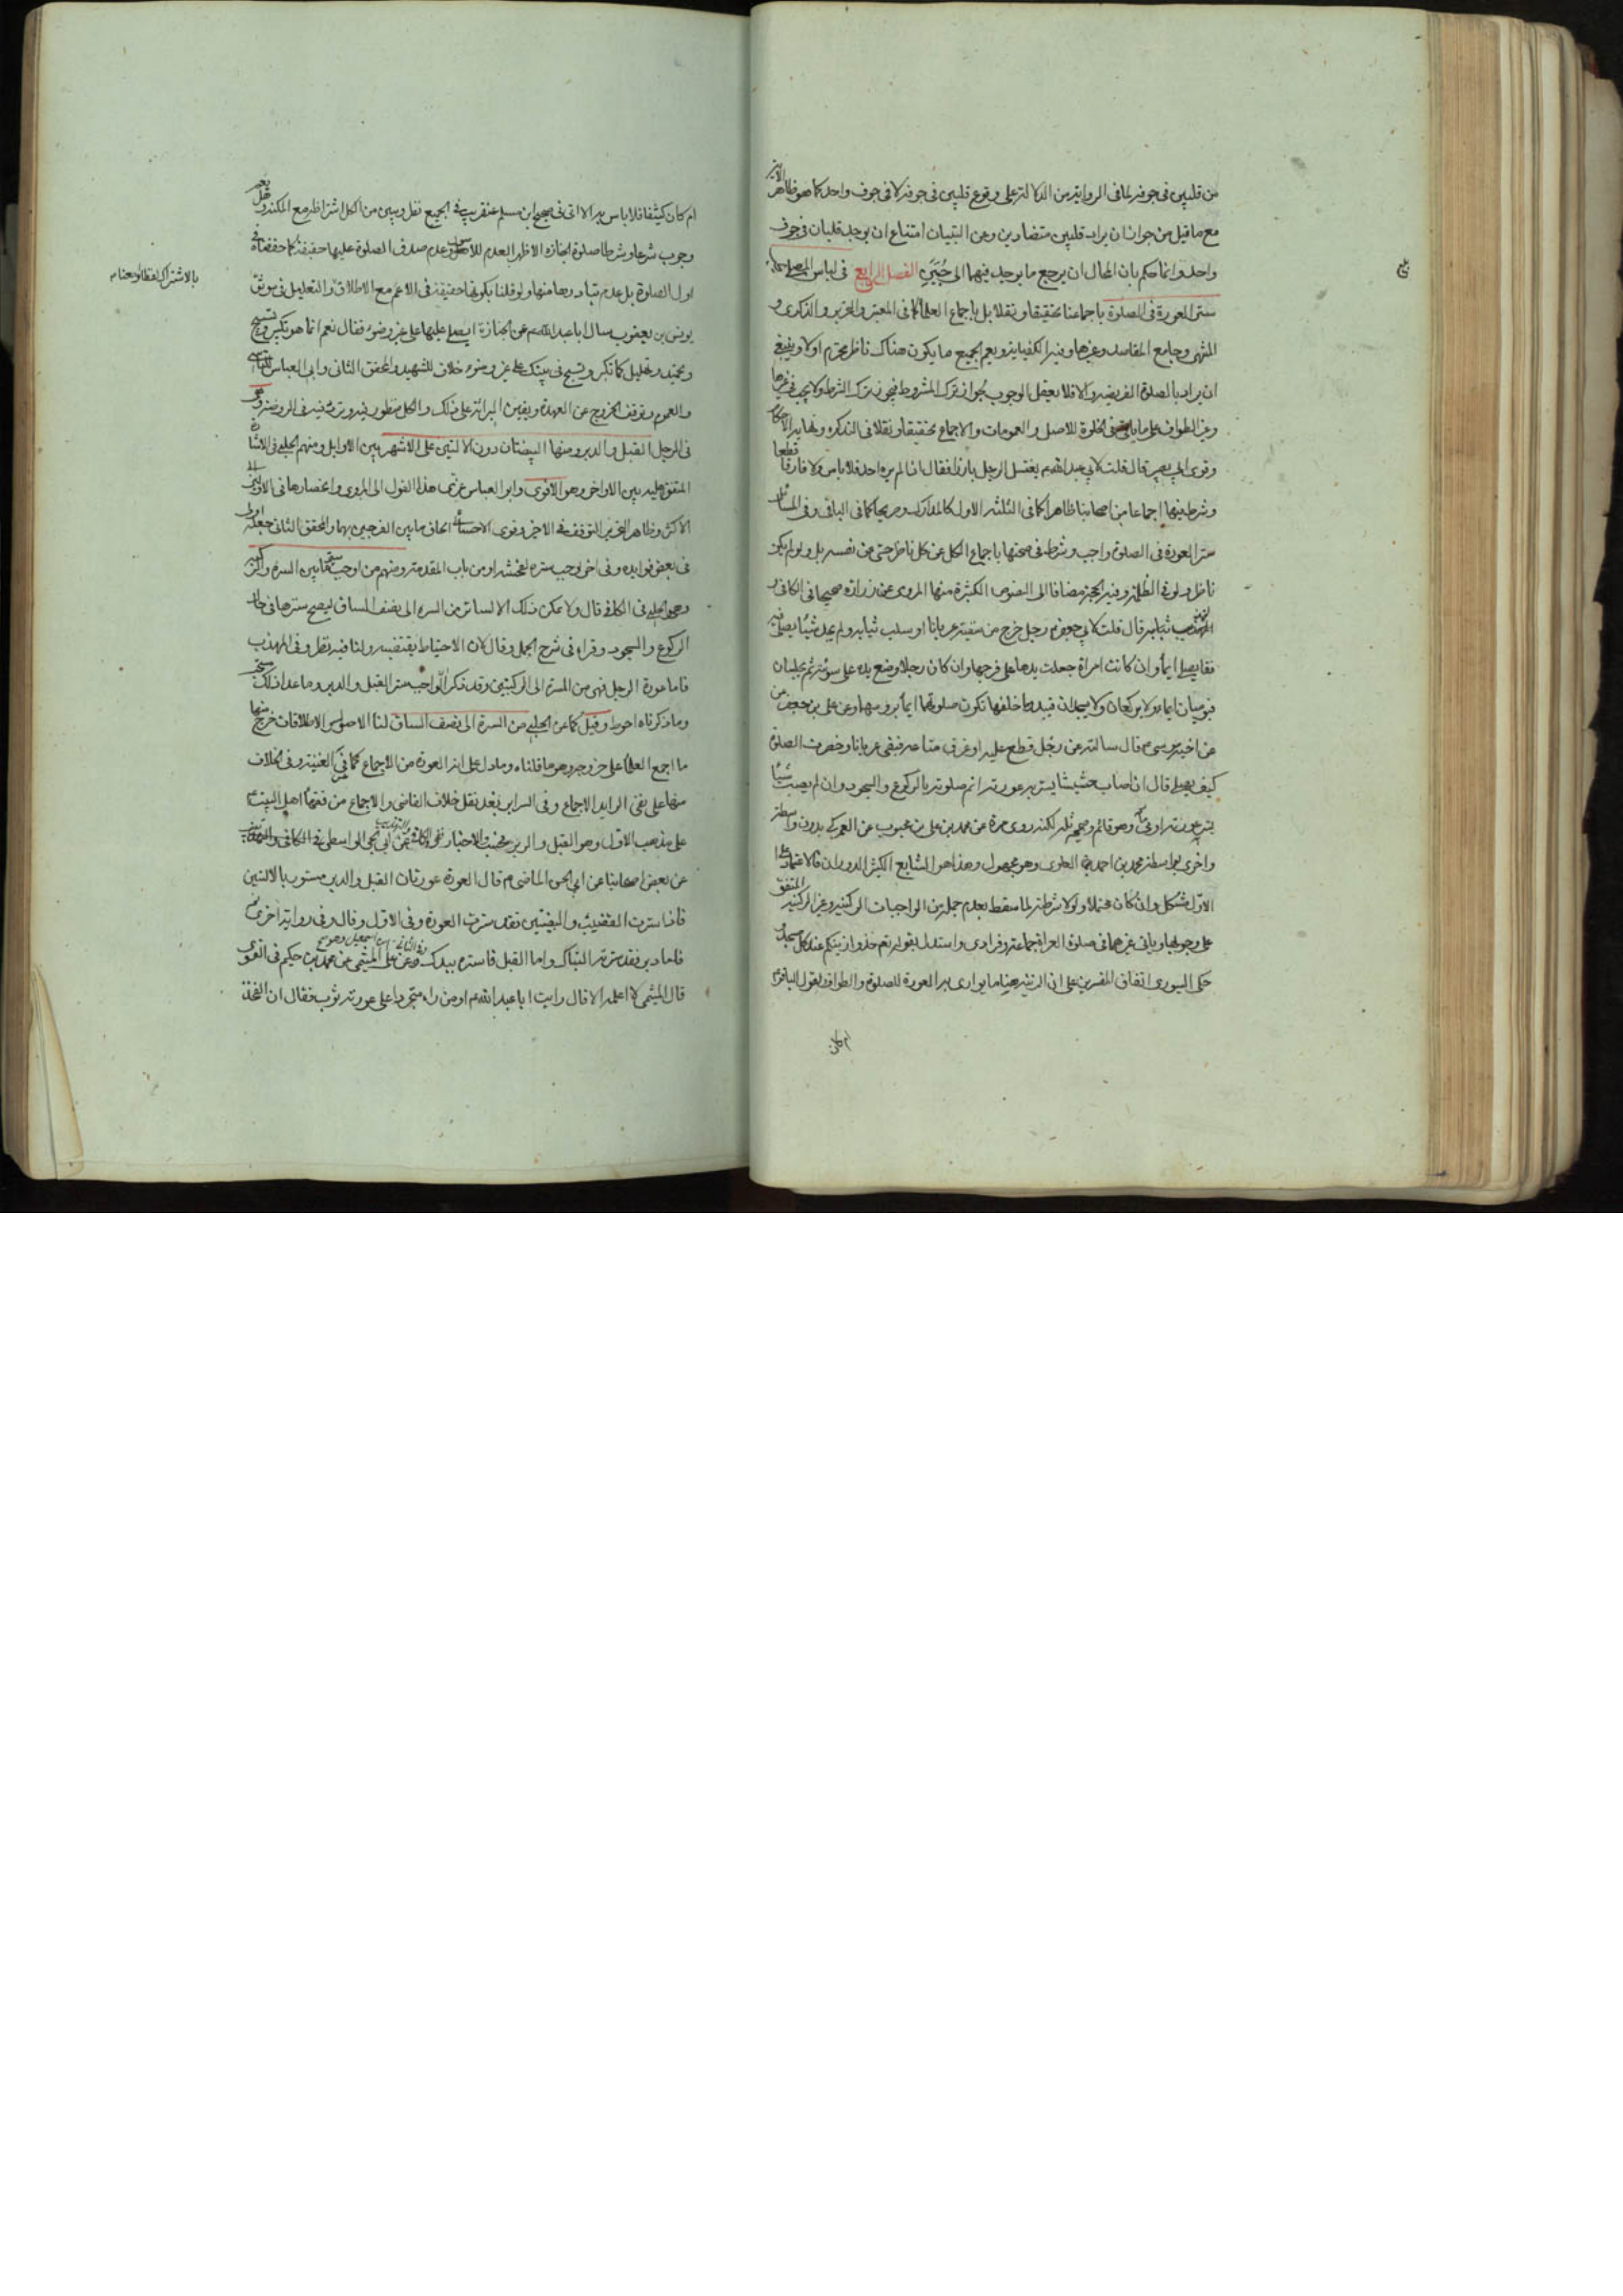 من قلبين في جوفه لما في الرواية من الدلالة على وقوع قلبين في جوفه لا في جوف واحد كما هو ظاهر الآية
مع ما قيل من جواز ان يراد قلبين متضادين وعن التبيان امتناع ان يوجد قلبان في جوف
واحد وانما حكم بان المحال ان يرجع ما يوجد فيهما الى حيين الفصل الرابع في لباس المصلي
ستر العورة في الصلوة باجماعنا تحقيقا ونقلا بل باجماع العلماء كما في المعتبر والتحرير والذكرى و
المنتهى وجامع المقاصد وغيرها وفيه الكفاية ويعم الجميع ما يكون هناك ناظر محترم اولا وينبغي
ان يراد بالصلوة الفريضة والا فلا يعقل الوجوب لجواز ترك المشروط فيجوز ترك الشرط ولا يجب في غيرها
وغير الطواف على ما يأتي في الخلوة للاصل والعمومات والاجماع تحقيقا ونقلا في التذكرة ونهاية الاحكام
وقوي ابي بصير قال قلت لابي عبد الله ع يغتسل الرجل بارزا فقال اذا لم يره احد فلا باس ولا فارق قطعا
وشرط فيها اجماعا من اصحابنا ظاهرا كما في الثلثة الاول كالمدارك وصريحا كما في الباقي وفي المسائل
ستر العورة في الصلوة واجب وشرط في صحتها باجماع الكل عن كل ناظر حتى من نفسه بل ولو لم يكن
ناظر ولو في الظلمة وفيه الحجة مضافا الى النصوص الكثيرة منها المروي عن زرارة صحيحا في الكافي و
التهذيب قال قلت لابي جعفر ع رجل خرج من سفينة عريانا او سلب ثيابه ولم يجد شيئا يصلي فيه
فقال يصلي ايماء وان كانت امراة جعلت يدها على فرجها وان كان رجلا وضع يده على سوئته ثم يجلسان
فيوميان ايماء ولا يركعان ولا يسجدان فيبدو ما خلفهما تكون صلوتهما ايماء برؤسهما وعن علي بن جعفر
عن اخيه موسى ع قال سالته عن رجل قطع عليه او غرق متاعه فبقي عريانا وحضرت الصلوة
كيف يصلي قال ان اصاب حشيشا يستر به عورته اتم صلوته بالركوع والسجود وان لم يصب شيئا
يستر به عورته اومى وهو قائم لكنه روى مرة عن محمد بن علي بن محبوب عن العمركي بدون واسطة
واخرى بواسطة محمد بن احمد العلوي وهو مجهول وهذا هو الشايع الكثير الدوران فالاعتماد على
الاول مشكل وان كان محتملا ولولا شرطيته لما سقط بعدمه جملة من الواجبات الركنية وغير الركنية المتفق
على وجوبها وياتي غيرهما في صلوة العراة جماعة وفرادى واستدل بقوله تعم خذوا زينتكم عند كل مسجد
حكى السيوري اتفاق المفسرين على ان الزينة هنا ما يوارى به العورة للصلوة والطواف ولقول الباقر ع
ام كان
ام كان كثيفا فلا باس به الا اتى في صحيح ابن مسلم عنقريب في الجميع نظر وبين من الكل اشتراطه مع المكنة وهل يعم
وجوب شرعا وشرطا صلوة الجنازة الاظهر العدم للاصل وعدم صدق الصلوة عليها حقيقة كما حققناه في
اول الصلوة بل عدم تبادرها منها ولو قلنا بكونها حقيقة في الاعم مع الاطلاق والتعليل في موثق
بالاشتراك لفظا او معنا
يونس بن يعقوب سال ابا عبد الله ع عن الجنازة ايصلي عليها على غير وضوء فقال نعم انما هو تكبير وتسبيح
وتحميد وتهليل كما تكبر وتسبح في بيتك على غير وضوء خلاف للشهيد والمحقق الثاني وابي العباس للتاسي
والعموم وتوقف الخروج عن العهدة ويقين البرائة على ذلك والكل منظور فيه وتردد فيه في الروضة وهي
في الرجل القبل والدبر ومنها البيضتان دون الاليتين على الاشهر بين الاوايل ومنهم الحلبي في الاشارة
المتفق عليه بين الاواخر وهو الاقوى وابو العباس عزى هذا القول الى المروي وانحصارها في الاولين
الاكثر وظاهر التحرير التوقف في الاخير وقوى الاحساني الحاق ما بين الفرجين بهما والمحقق الثاني جعله اولى
في بعض فوايده وفي اخر اوجب ستره للخنثى او من باب المقدمة ومنهم من اوجب ستر ما بين السرة والركبة
وهو الحلبي في الكافي قال ولا يمكن ذلك الا لساتر من السرة الى نصف الساق ليصح سترها في حال
الركوع والسجود وقراه في شرح الجمل وقال لان الاحتياط يقتضيه ولنا فيه نظر وفي المهذب
فاما عورة الرجل فهي من السرة الى الركبتين وقد ذكر ان الواجب ستر القبل والدبر وما عدا ذلك مستحب
وما ذكرناه احوط وقيل كما عن الحلبي من السرة الى نصف الساق لنا الاصل والاطلاقات خرج منها
ما اجمع العلماء على خروجه وهو ما قلناه وما دل على انه العورة من الاجماع كما في الغنية وفي الخلاف
منها على نفي الزايد الاجماع وفي السراير بعد نقل خلاف القاضي والاجماع من فقهاء اهل البيت ع
على مذهب الاول وهو القبل والدبر عن ابي يحيى الواسطي في الكافي والتهذيب
عن بعض اصحابنا عن ابي الحسن الماضي ع قال العورة عورتان القبل والدبر مستور بالاليتين
فاذا سترت القضيب والبيضتين فقد سترت العورة وفي الاول وقال وفي رواية اخرى
فاما الدبر فقد سترته الاليتان واما القبل فاستره بيدك وعن علي بن اسمعيل الميثمي عن محمد بن حكيم في القوي
قال الميثمي لا اعلمه الا قال رايت ابا عبد الله ع او من راه متجردا على عورته ثوب فقال ان الفخذ